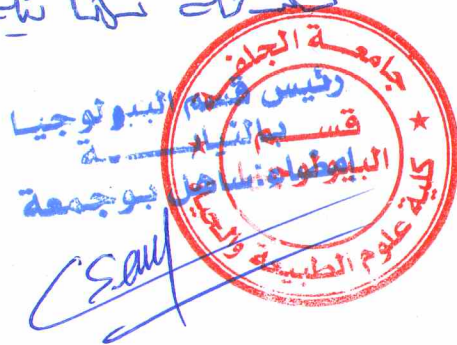 رئيس قسم البيولوجيا
بالنيابة
ساهل بوجمعة
جامعة الجلفة
كلية علوم الطبيعة والحياة
قسم
البيولوجيا